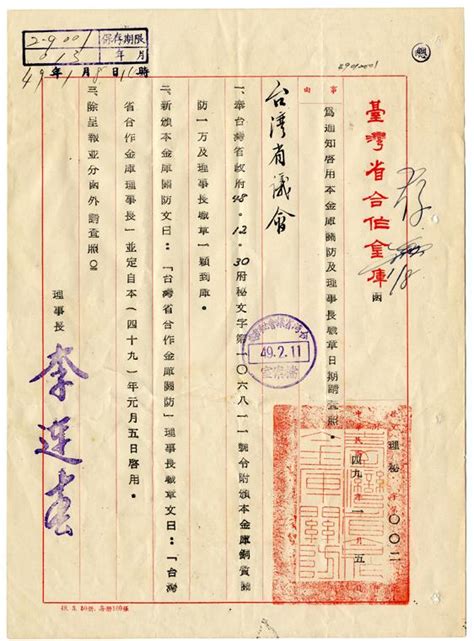 總
臺灣省合作金庫函
存
1/8
事由
為通知啓用本金庫關防及理事長職章日期請查照。
台灣省議會
一、奉台灣省政府48.12.30府秘文字第一〇六八一一號令附頒本金庫銅質關
防一方及理事長職章一顆到庫。
二、新頒本金庫關防文曰:「台灣省合作金庫關防」理事長職章文曰:「台灣
省合作金庫理事長」並定自本(四十九)年元月五日啓用。
三、除呈報並分函外請查照。
理事長
李連春
理秘
〇〇二
中華民國四九 一月五
臺灣省合作金庫關防
49.2.11
保存期限
年 月
49年1月8日11時